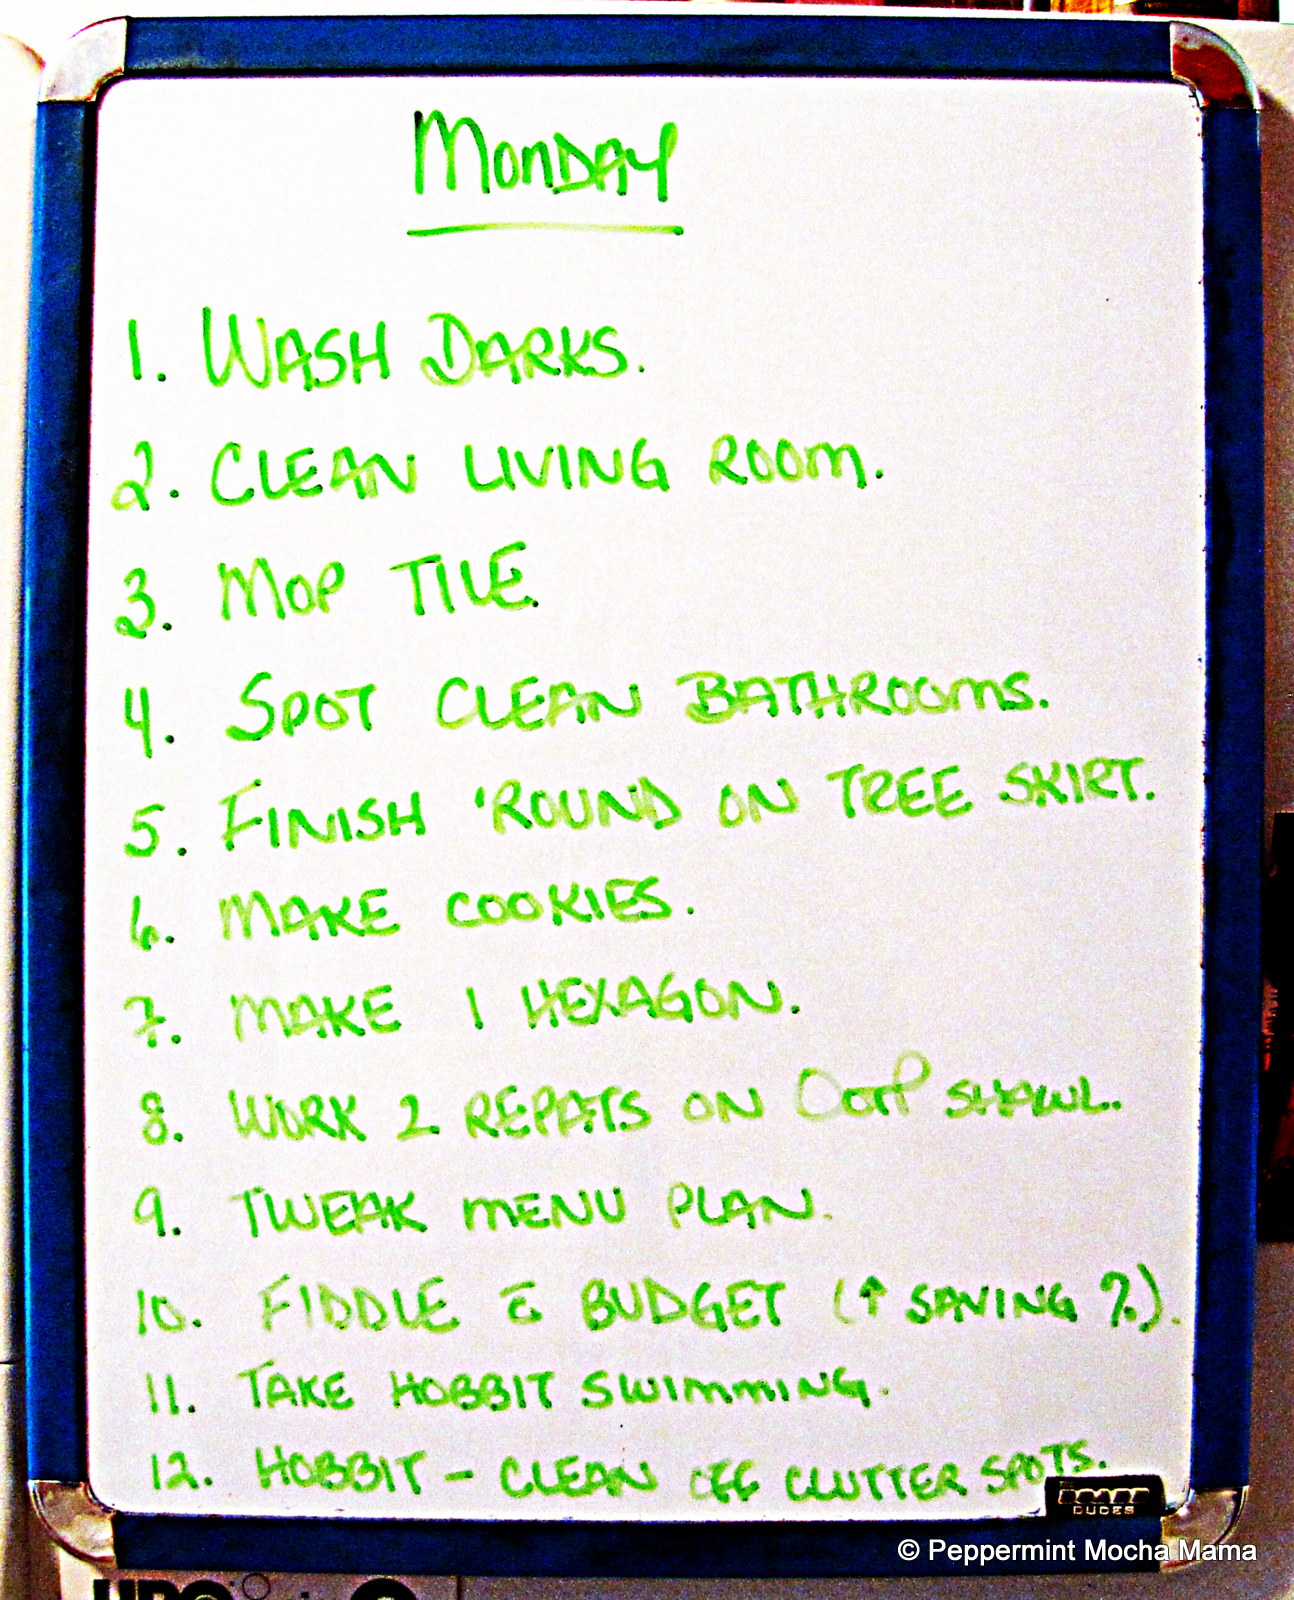 Monday
1. WASH DARKS.
2. CLEAN LIVING ROOM.
3. MOP TILE.
4. SPOT CLEAN BATHROOMS.
5. FINISH 'ROUND ON TREE SKIRT.
6. MAKE COOKIES.
7. MAKE 1 HEXAGON.
8. WORK 2 REPATS ON OotP SHAWL.
9. TWEAK MENU PLAN.
10. FIDDLE c̄ BUDGET (↑ SAVING %).
11. TAKE HOBBIT SWIMMING.
12. HOBBIT - CLEAN OFF CLUTTER SPOTS.
DUDES
© Peppermint Mocha Mama